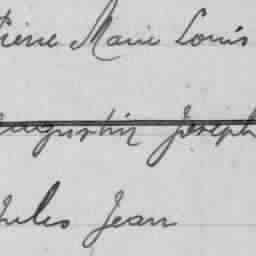 Pierre Marie Louis
Augustin Joseph
Jules Jean